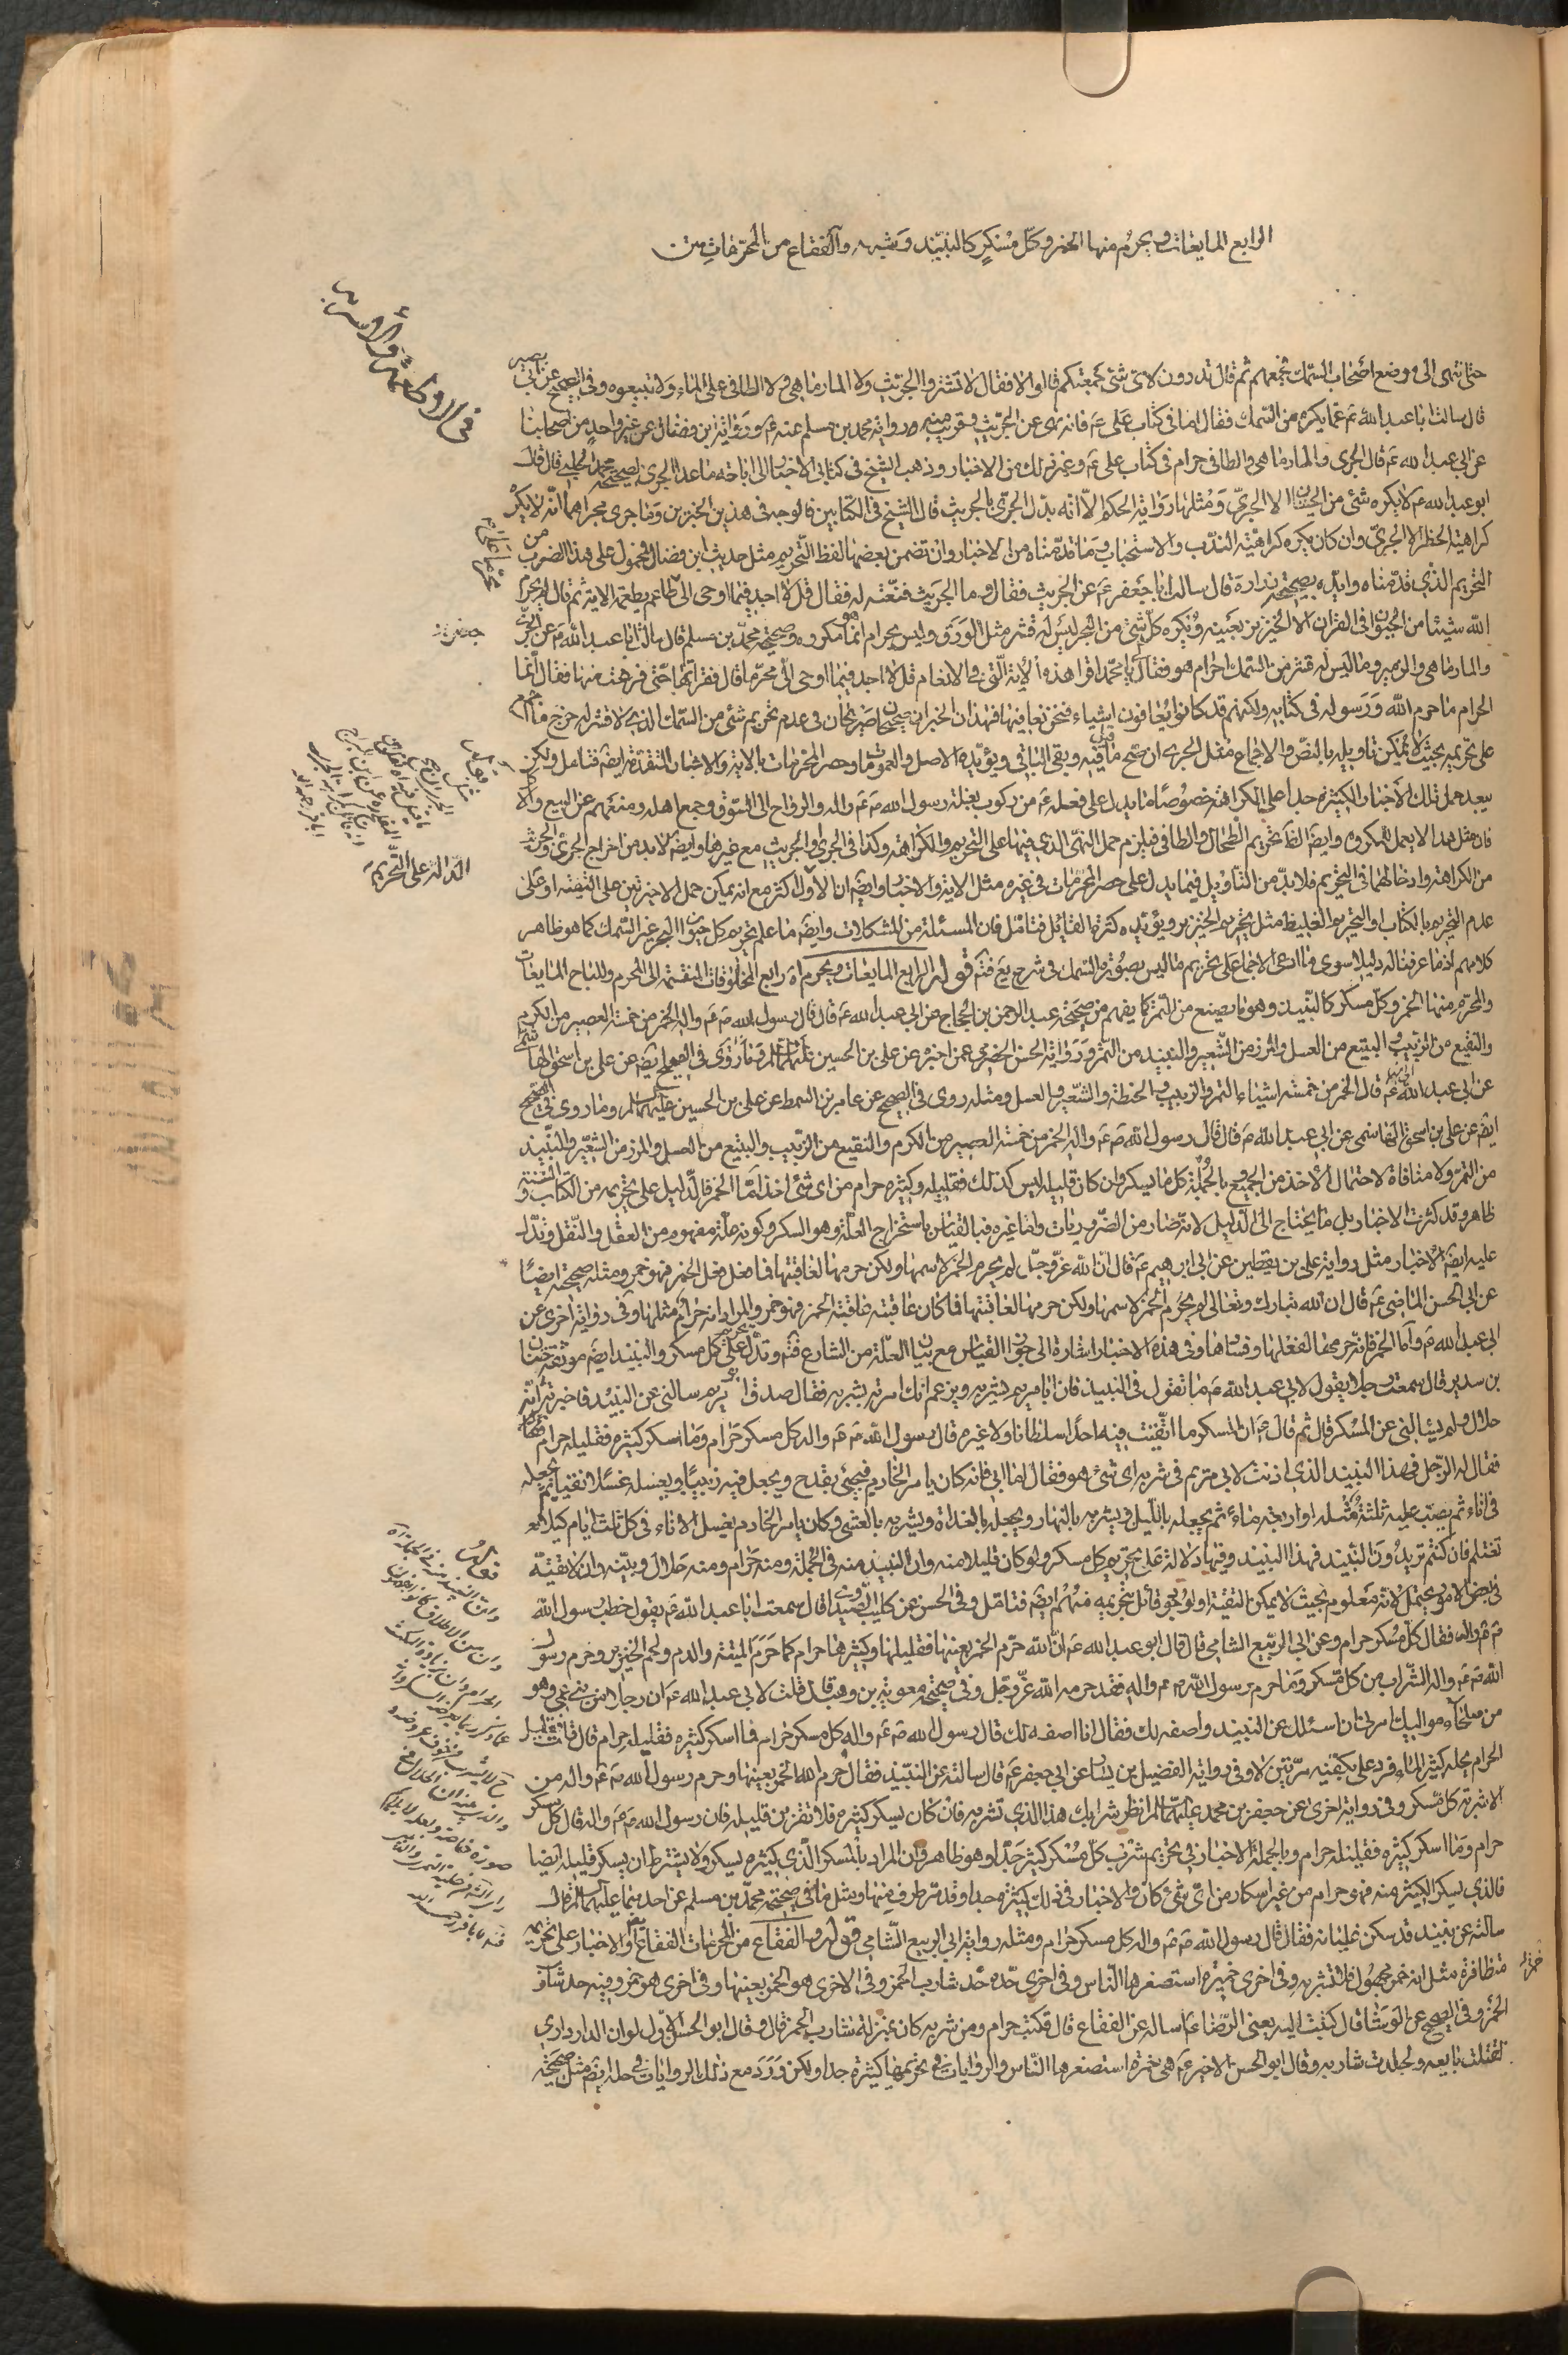 الرابع المايعات ويحرم منها الخمر وكل مسكر كالنبيذ وشبهه والفقاع من المحرمات متن
في الاطعمة والاشربة
حتى انتهى الى موضع اصحاب السمك فجمعهم ثم قال تدرون لاى شئ جمعتكم قالوا لا فقال لا تشتروا الجريث ولا المارماهى ولا الطافى على الماء ولا تبيعوه وفى الصحيح عن ابى بصير
قال سالت ابا عبد الله ع عما يكره من السمك فقال اما فى كتاب على ع فانه نهى عن الجريث وقريب منه رواية محمد بن مسلم عنه ع ورواية ابن فضال عن غير واحد من اصحابنا
عن ابى عبد الله ع قال الجرى والمارماهى والطافى حرام فى كتاب على ع وغير ذلك من الاخبار وذهب الشيخ فى كتابى الاخبار الى اباحة ما عدا الجرى لصحيحة محمد الحلبى قال قال
ابو عبد الله ع لا يكره شئ من الحيتان الا الجرى ومثلها رواية الحكم الا انه بدل الجرى بالجريث قال الشيخ فى الكتابين فالوجه فى هذين الخبرين وما جرى مجراهما انه لا يكره
كراهية الحظر الا الجرى وان كان يكره كراهية الندب والاستحباب وما قدمناه من الاخبار وان تضمن بعضها لفظ التحريم مثل حديث ابن فضال فمحمول على هذا الضرب من
التحريم الذى قدمناه وايده بصحيحة زرارة قال سالت ابا جعفر ع عن الجريث فقال وما الجريث فنعته له فقال قل لا اجد فيما اوحى الى محرما على طاعم يطعمه الاية ثم قال لم يحرم
الله شيئا من الحيوان فى القران الا الخنزير بعينه ويكره كل شئ من البحر ليس له قشر مثل الورق وليس بحرام انما هو مكروه وصحيحة محمد بن مسلم قال سالت ابا عبد الله ع عن الجرى
والمارماهى والزمير وما ليس له قشر من السمك احرام هو فقال لى يا محمد اقرا هذه الاية التى فى الانعام قل لا اجد فيما اوحى الى محرما قال فقراتها حتى فرغت منها فقال انما
الحرام ما حرم الله ورسوله فى كتابه ولكنهم قد كانوا يعافون اشياء فنحن نعافها فهذان الخبران صحيحان صريحان فى عدم تحريم شئ من السمك الذى لا قشر له خرج ما اجمع
على تحريمه بحيث لا يمكن تاويله بالنص والاجماع مثل الجرى ان صح ما قيل فيه وبقى الباقى ويؤيده الاصل والعمومات وحصر المحرمات بالاية والاخبار المتقدمة ايضا فتامل ولكن
يبعد حمل تلك الاخبار الكثيرة جدا على الكراهة خصوصا ما يدل على فعله ع من ركوب بغلة رسول الله ص ع واله والرواح الى السوق وجمع اهله ومنعهم عن البيع والاكل
فان مثل هذا لا يعمل للمكروه وايضا الظ تحريم الطحال والطافى فيلزم حمل النهى الذى فيها على التحريم والكراهة وكذا فى الجرى والجريث مع غيرها وايضا لا بد من اخراج الجرى والجريث
من الكراهة وادخالهما فى التحريم فلا بد من التاويل فيما يدل على حصر المحرمات فى غيره مثل الاية والاخبار وايضا ان الاول اكثر مع انه يمكن حمل الاخيرتين على التقية او على
عدم التحريم بالكتاب او التحريم الغليظ مثل تحريم الخنزير ويؤيده كثرة القائل فتامل فان المسئلة من المشكلات وايضا ما علم تحريم كل حيوان البحر غير السمك كما هو ظاهر
كلامهم اذ ما عرفنا له دليلا سوى ما ادعى الاجماع على تحريم ما ليس بصورة السمك فى شرح يع فتم قوله الرابع المايعات ويحرم اه رابع المخلوقات المنقسمة الى المحرم والمباح المايعات
والمحرم منها الخمر وكل مسكر كالنبيذ وهو ما يصنع من التمر كما يفهم من صحيحة عبد الرحمن بن الحجاج عن ابى عبد الله ع قال قال رسول الله ص ع واله الخمر من خمسة العصير من الكرم
والنقيع من الزبيب والبتع من العسل والمزر من الشعير والنبيذ من التمر ورواية الحسن الحضرمى عمن اخبره عن على بن الحسين عليهما السلام وما روى فى الصحيح ايضا عن على بن اسحق الهاشمى
عن ابى عبد الله ع قال الخمر من خمسة اشياء التمر والزبيب والحنطة والشعير والعسل ومثله روى فى الصحيح عن عامر بن السمط عن على بن الحسين عليهما السلام وما روى فى الصحيح
ايضا عن على بن اسحق الهاشمى عن ابى عبد الله ع قال قال رسول الله ص ع واله الخمر من خمسة العصير من الكرم والنقيع من الزبيب والبتع من العسل والمزر من الشعير والنبيذ
من التمر ولا منافاة لاحتمال الاخذ من الجميع وبالجملة كل ما يسكر وان كان قليله ليس كذلك فقليله وكثيره حرام من اى شئ اخذ اما الخمر فالدليل على تحريمه من الكتاب والسنة
ظاهر وقد كثرت الاخبار بل ما يحتاج الى الدليل لانه صار من الضروريات واما غيره فبالقياس باستخراج العلة وهو السكر وكونه علة مفهوم من العقل والنقل وتدل
عليه ايضا الاخبار مثل رواية على بن يقطين عن ابى ابرهيم ع قال ان الله عز وجل لم يحرم الخمر لاسمها ولكن حرمها لعاقبتها فما فعل فعل الخمر فهو خمر ومثله صحيحة ايضا
عن ابى الحسن الماضى ع قال ان الله تبارك وتعالى لم يحرم الخمر لاسمها ولكن حرمها لعاقبتها فما كان عاقبته عاقبة الخمر فهو خمر والمراد انه حرام مثلها وفى رواية اخرى عن
ابى عبد الله ع واما الخمر فانه حرمها لفعلها وفسادها وفى هذه الاخبار اشارة الى جواز القياس مع بيان العلة من الشارع فتم وتدل على تحريم كل مسكر والنبيذ ايضا موثقة حنان
بن سدير قال سمعت رجلا يقول لابى عبد الله ع ما تقول فى النبيذ فان ابا مريم يشربه ويزعم انك امرته بشربه فقال صدق ابو مريم سالنى عن النبيذ فاخبرته انه
حلال ولم يسالنى عن المسكر قال ثم قال ع ان المسكر ما اتقيت فيه احدا سلطانا ولا غيره قال رسول الله ص ع واله كل مسكر حرام وما اسكر كثيره فقليله حرام
فقال له الرجل هذا النبيذ الذى اذنت لابى مريم فى شربه اى شئ هو فقال اما ابى فانه كان يامر الخادم فيجئ بقدح ويجعل فيه زبيبا ويغسله غسلا نقيا ثم يجعله
فى اناء ثم يصب عليه ثلثة مثله او اربعة ماء ثم يجعله بالليل ويشربه بالنهار ويجعله بالغداة ويشربه بالعشى وكان يامر الخادم بغسل الاناء فى كل ثلث ايام كيلا
يغتلم فان كنتم تريدون النبيذ فهذا النبيذ وفيها دلالة على تحريم كل مسكر ولو كان قليلا منه وان النبيذ منه فى الجملة ومنه حرام ومنه حلال وبينه وان لا تقية
فى بعض الامور يحتمل لانه معلوم بحيث لا يمكن التقية او لوجود قائل بتحريمه منهم ايضا فتامل وفى الحسن عن كليب الصيداوى قال سمعت ابا عبد الله ع يقول خطب رسول الله
ص ع واله فقال كل مسكر حرام وعن ابى الربيع الشامى قال قال ابو عبد الله ع ان الله حرم الخمر بعينها فقليلها وكثيرها حرام كما حرم الميتة والدم ولحم الخنزير وحرم رسول
الله ص ع واله الشراب من كل مسكر وما حرم رسول الله ص ع واله فقد حرمه الله عز وجل وفى صحيحة معوية بن وهب قال قلت لابى عبد الله ع ان رجلا من بنى عمى وهو
من صلحاء مواليك امرنى ان اسئلك عن النبيذ واصفه لك فقال انا اصفه لك قال رسول الله ص ع واله كل مسكر حرام فما اسكر كثيره فقليله حرام قال قلت فقليل
الحرام يحله كثير الماء فرد على بكفيه مرتين لا وفى رواية الفضيل بن يسار عن ابى جعفر ع قال سالته عن النبيذ فقال حرم الله الخمر بعينها وحرم رسول الله ص ع واله من
الاشربة كل مسكر وفى رواية اخرى عن جعفر بن محمد عليهما السلام انظر شرابك هذا الذى تشربه فان كان يسكر كثيره فلا تقربن قليله فان رسول الله ص ع واله قال كل مسكر
حرام وما اسكر كثيره فقليله حرام وبالجملة الاخبار فى تحريم شرب كل مسكر كثير جدا وهو ظاهر وان المراد بالمسكر الذى كثيره يسكر ولا يشترط ان يسكر قليله ايضا
فالذى يسكر الكثير منه فهو حرام من غير اسكار من اى شئ كان والاخبار فى ذلك كثيرة جدا وقد مر طرف منها ومثل ما فى صحيحة محمد بن مسلم عن احدهما عليهما السلام قال
سالته عن نبيذ قد سكن غليانه فقال قال رسول الله ص ع واله كل مسكر حرام ومثله رواية ابى الربيع الشامى قوله والفقاع من المحرمات الفقاع والاخبار على تحريمه
متظافرة مثل انه خمر مجهول فلا تشربه وفى اخرى خميرة استصغرها الناس وفى اخرى حده حد شارب الخمر وفى الاخرى هو الخمر بعينها وفى اخرى هو خمر وفيه حد شارب
الخمر وفى الصحيح عن الوشا قال كتبت اليه يعنى الرضا ع اساله عن الفقاع قال فكتب حرام ومن شربه كان بمنزلة شارب الخمر قال وقال ابو الحسن الاول لو ان الدار دارى
لقتلت بايعه ولجلدت شاربه وقال ابو الحسن الاخير ع هى خمرة استصغرها الناس والروايات فى تحريمها كثيرة جدا ولكن ورد مع ذلك الروايات فى حله ايضا مثل صحيحة
الدالة على التحريم